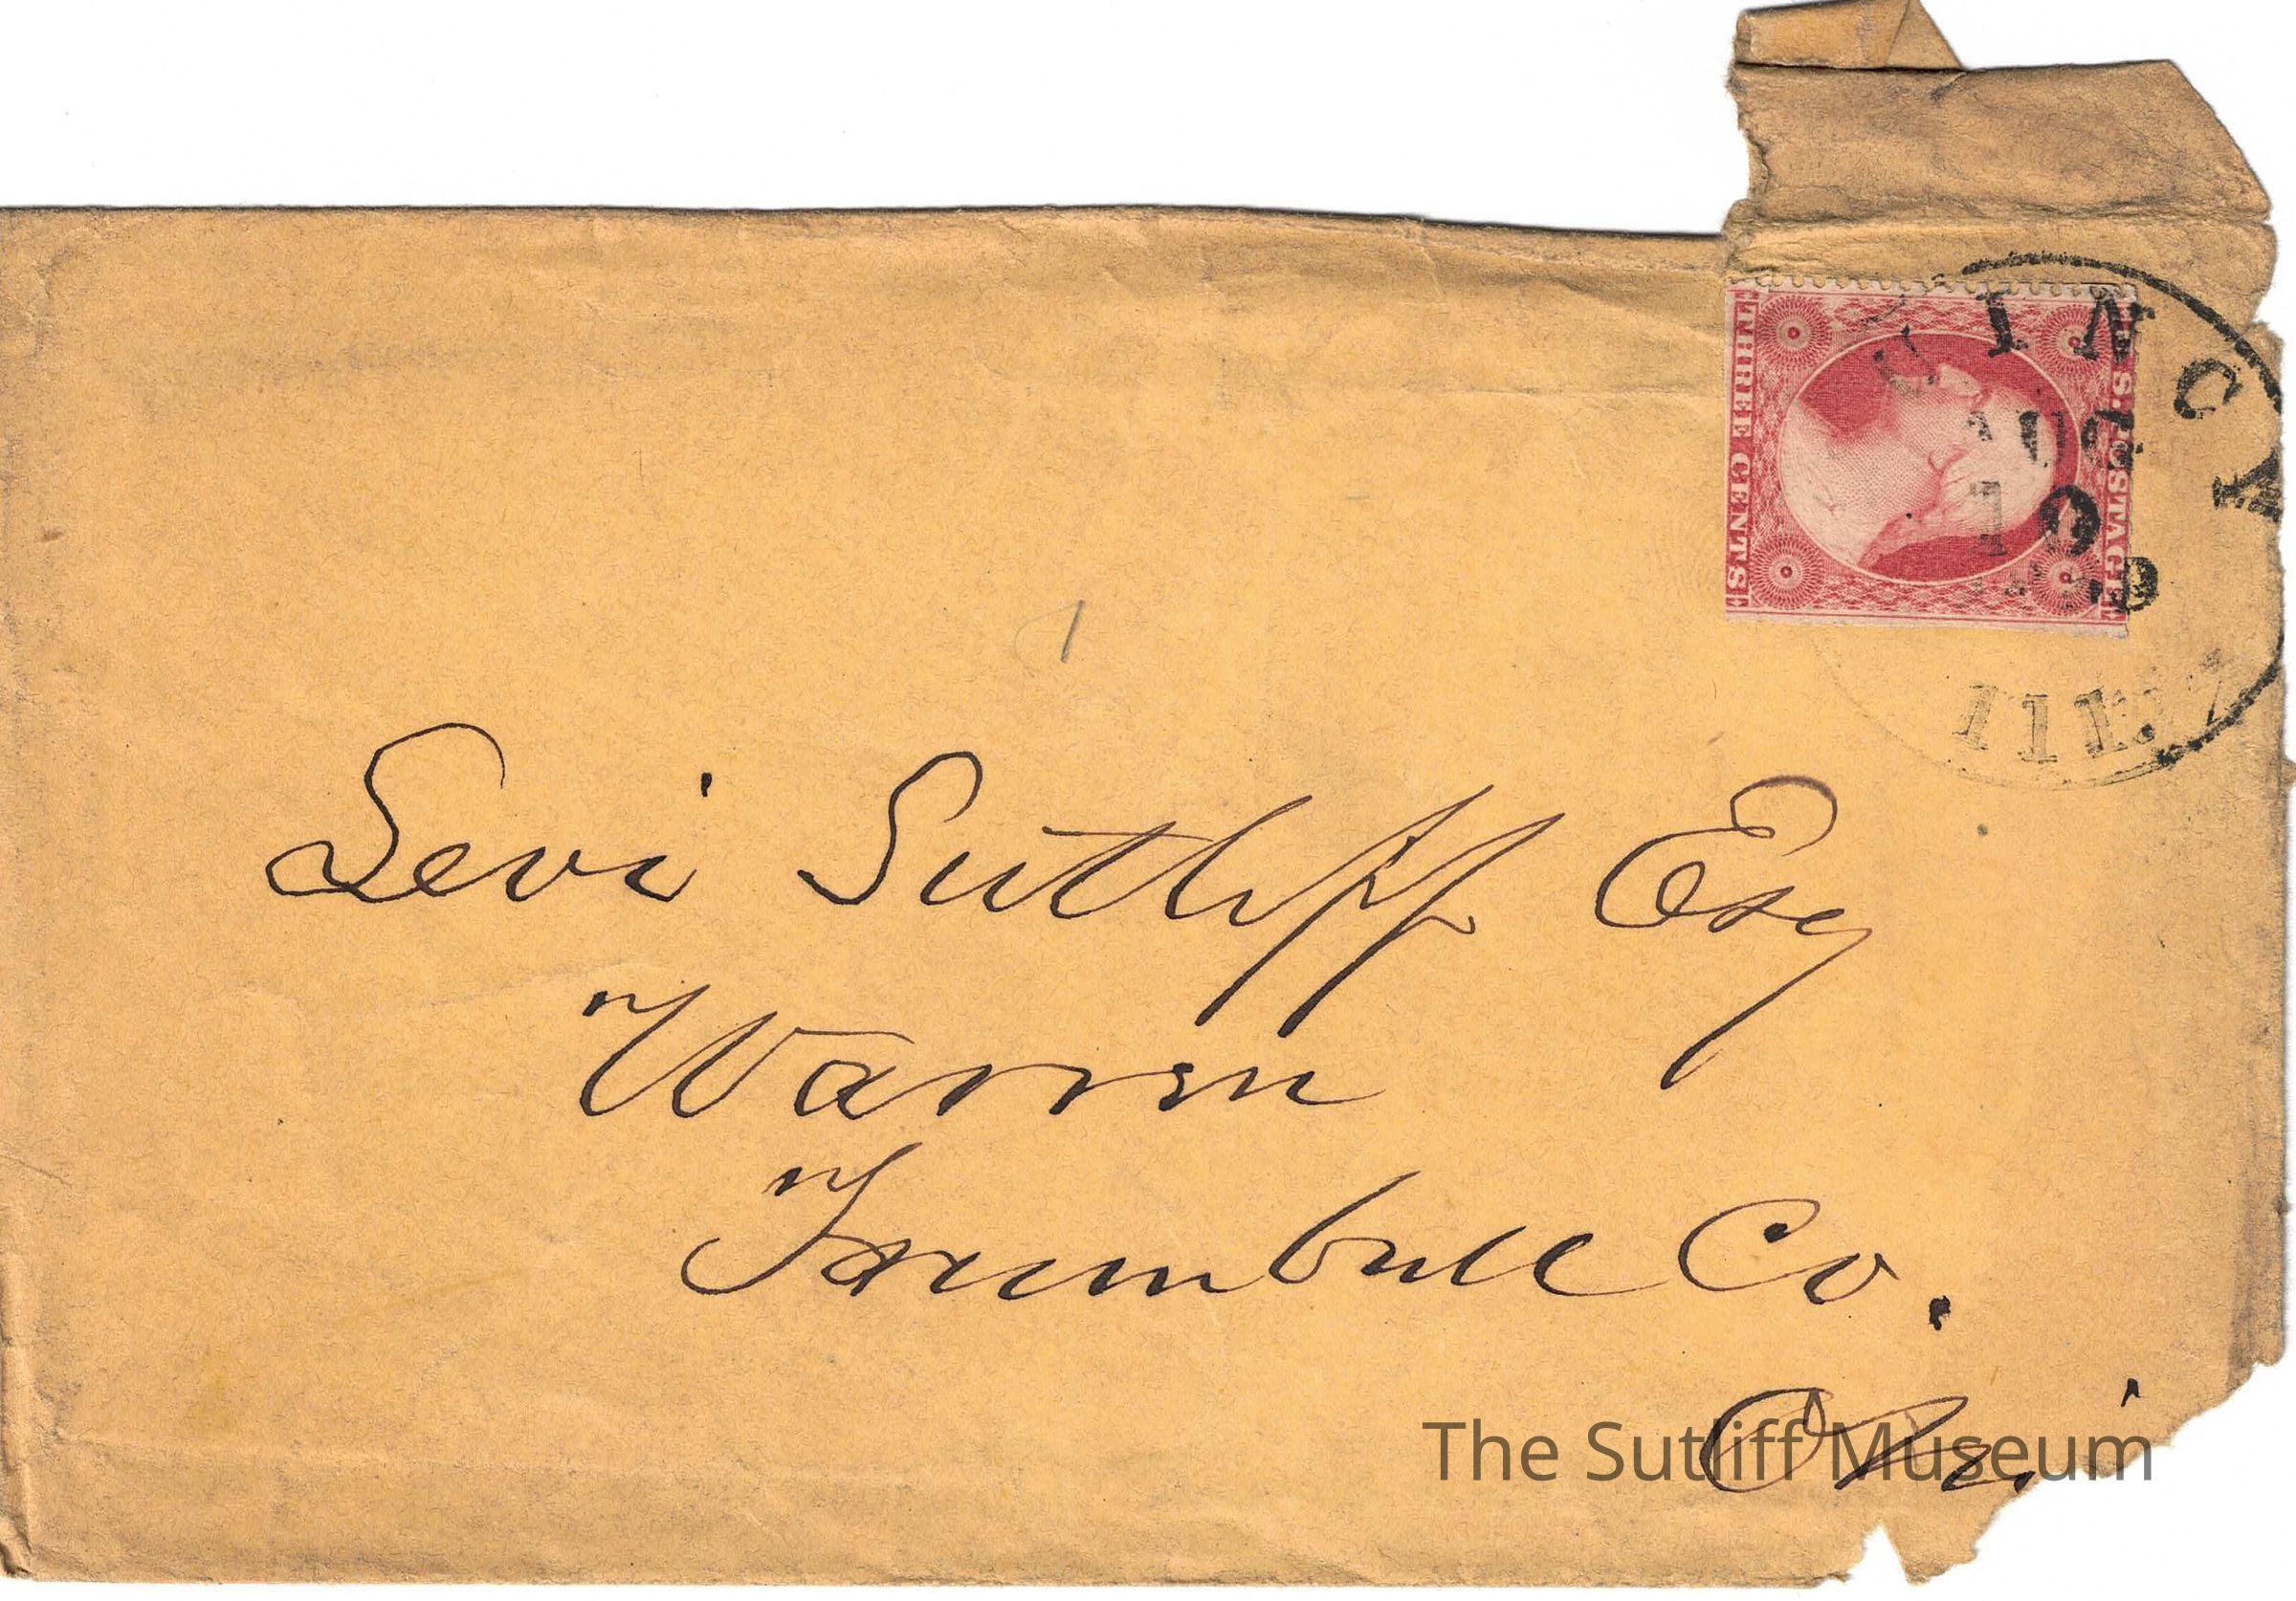 U.S. POSTAGE
THREE CENTS
QUINCY
AUG
10
Ill.
Levi Sutliff Esq
Warren
Trumbull Co.
The Sutliff Museum